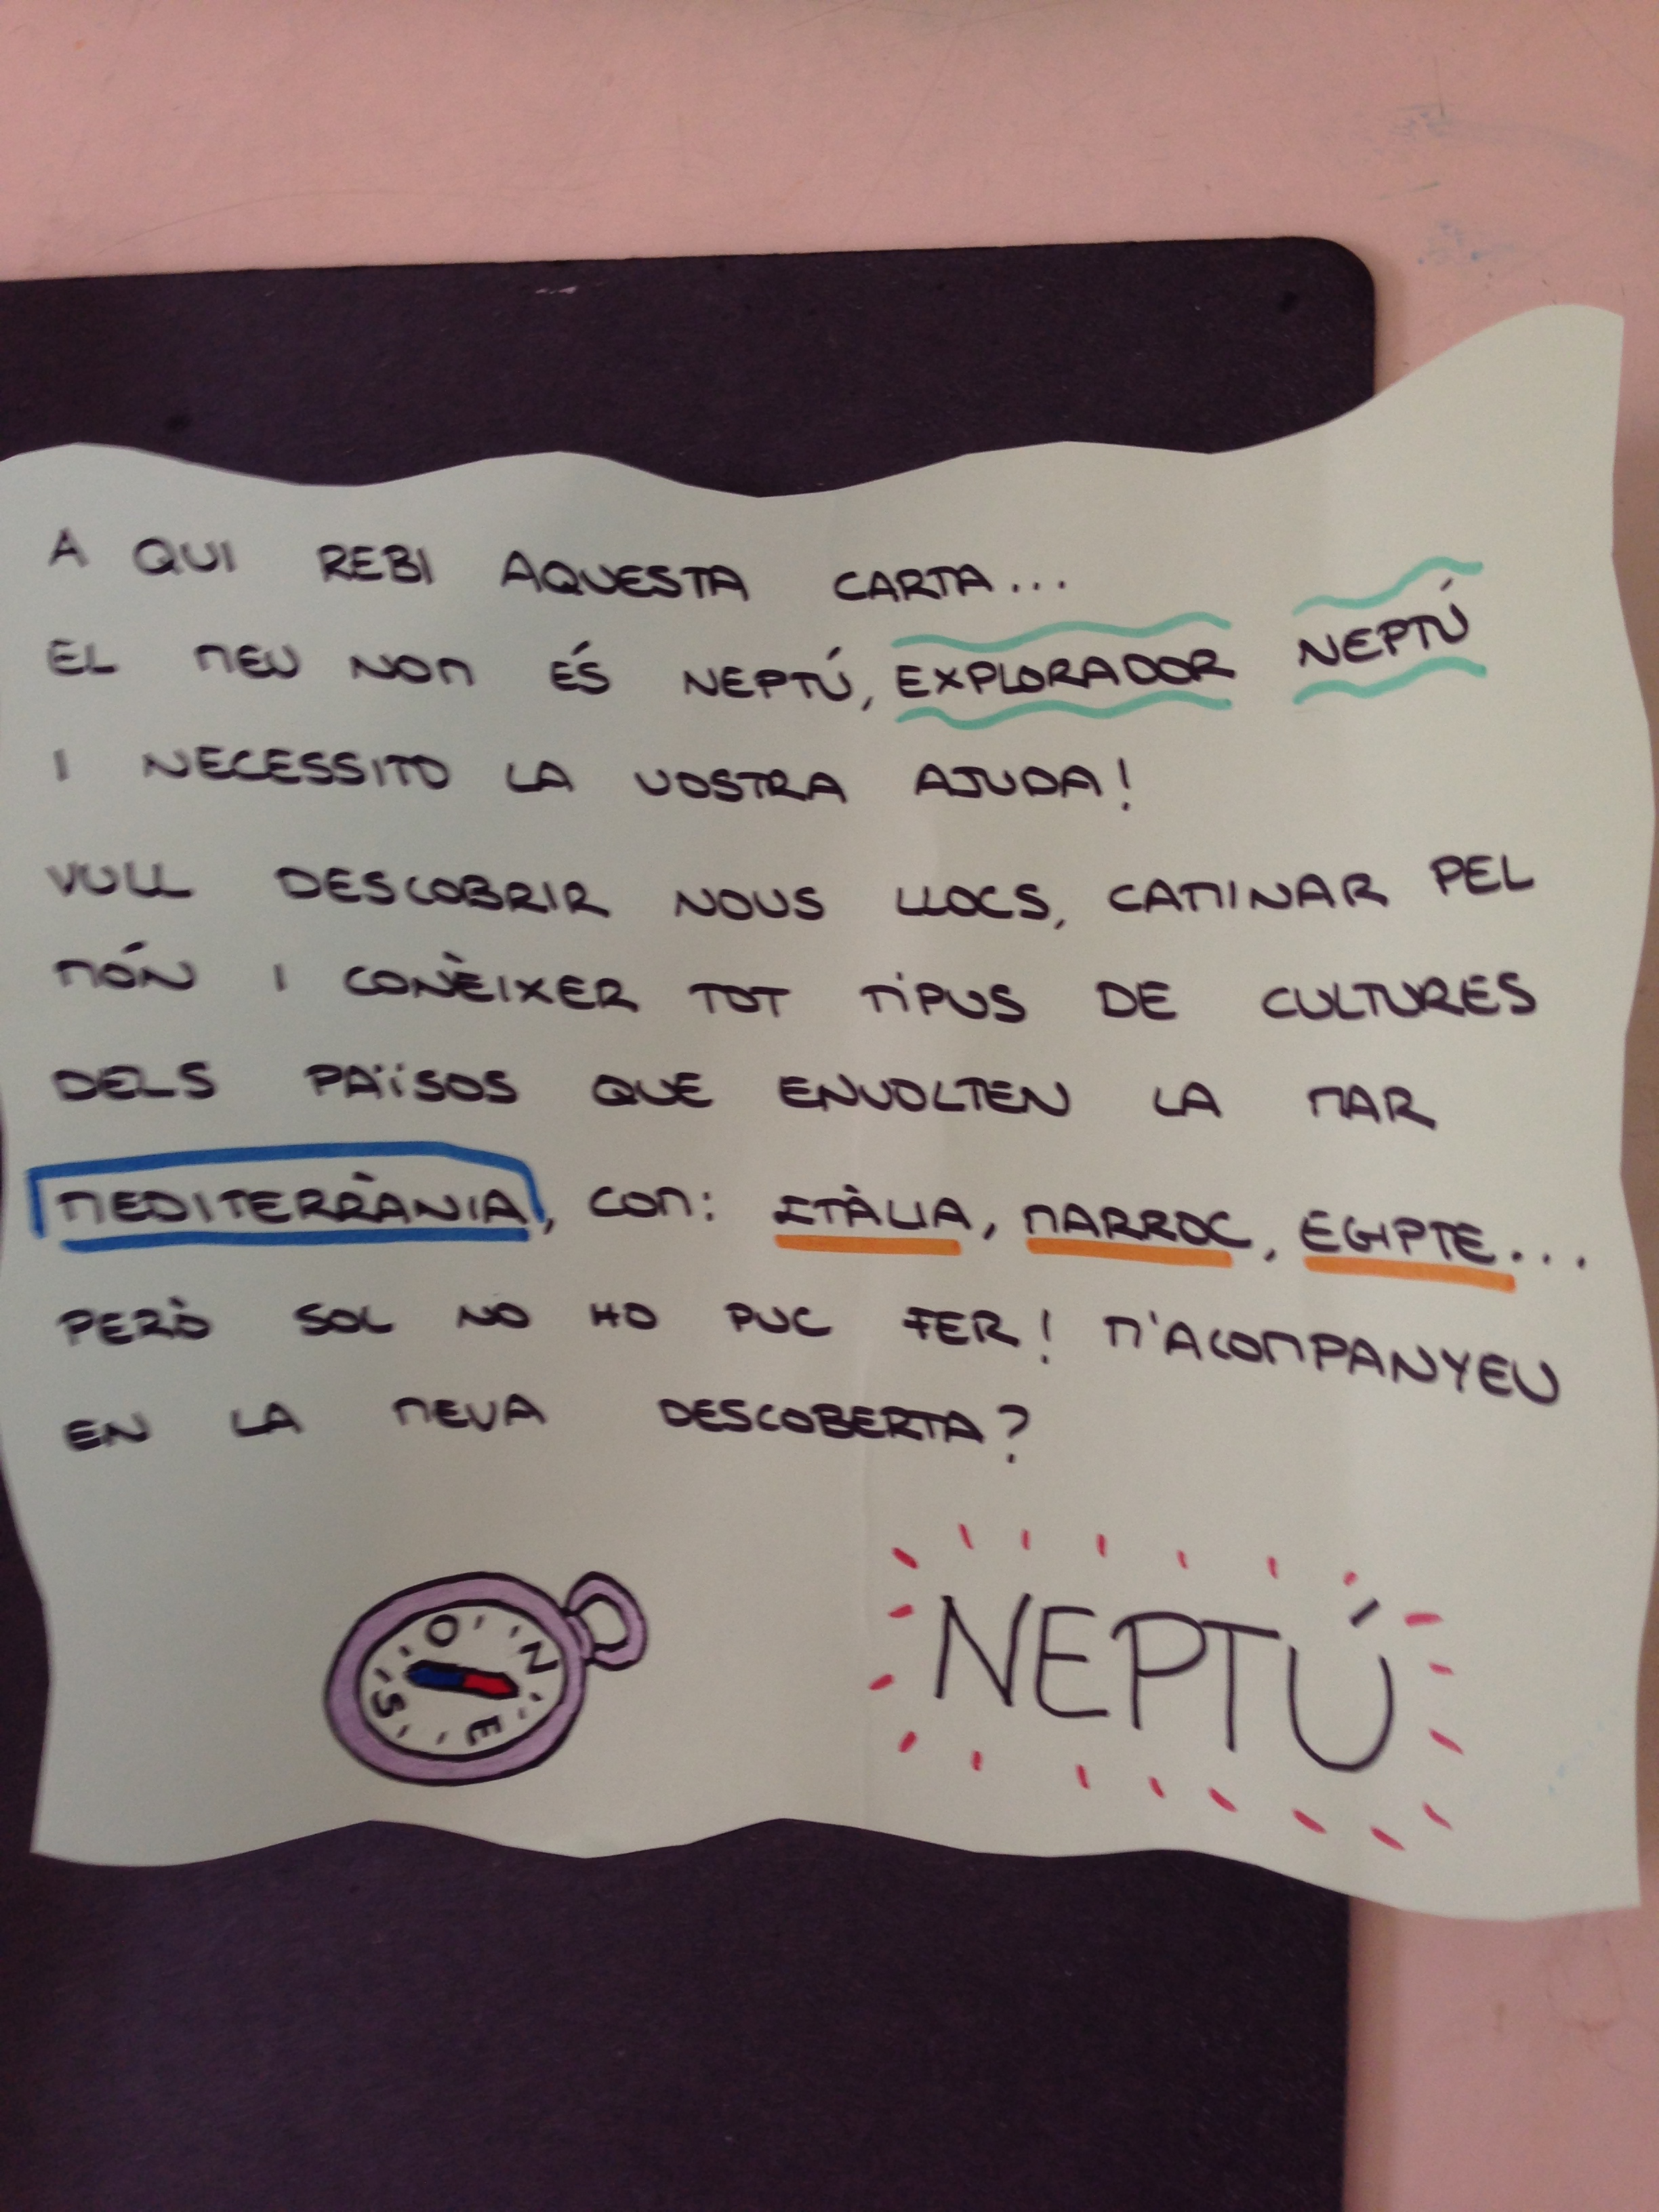 A QUI REBI AQUESTA CARTA...
EL MEU NOM ÉS NEPTÚ, EXPLORADOR NEPTÚ
I NECESSITO LA VOSTRA AJUDA!
VULL DESCOBRIR NOUS LLOCS, CAMINAR PEL
MÓN I CONÈIXER TOT TIPUS DE CULTURES
DELS PAÏSOS QUE ENVOLTEN LA MAR
MEDITERRÀNIA, COM: ITÀLIA, MARROC, EGIPTE...
PERÒ SOL NO HO PUC FER! M'ACOMPANYEU
EN LA MEVA DESCOBERTA?
O N
S E
NEPTÚ